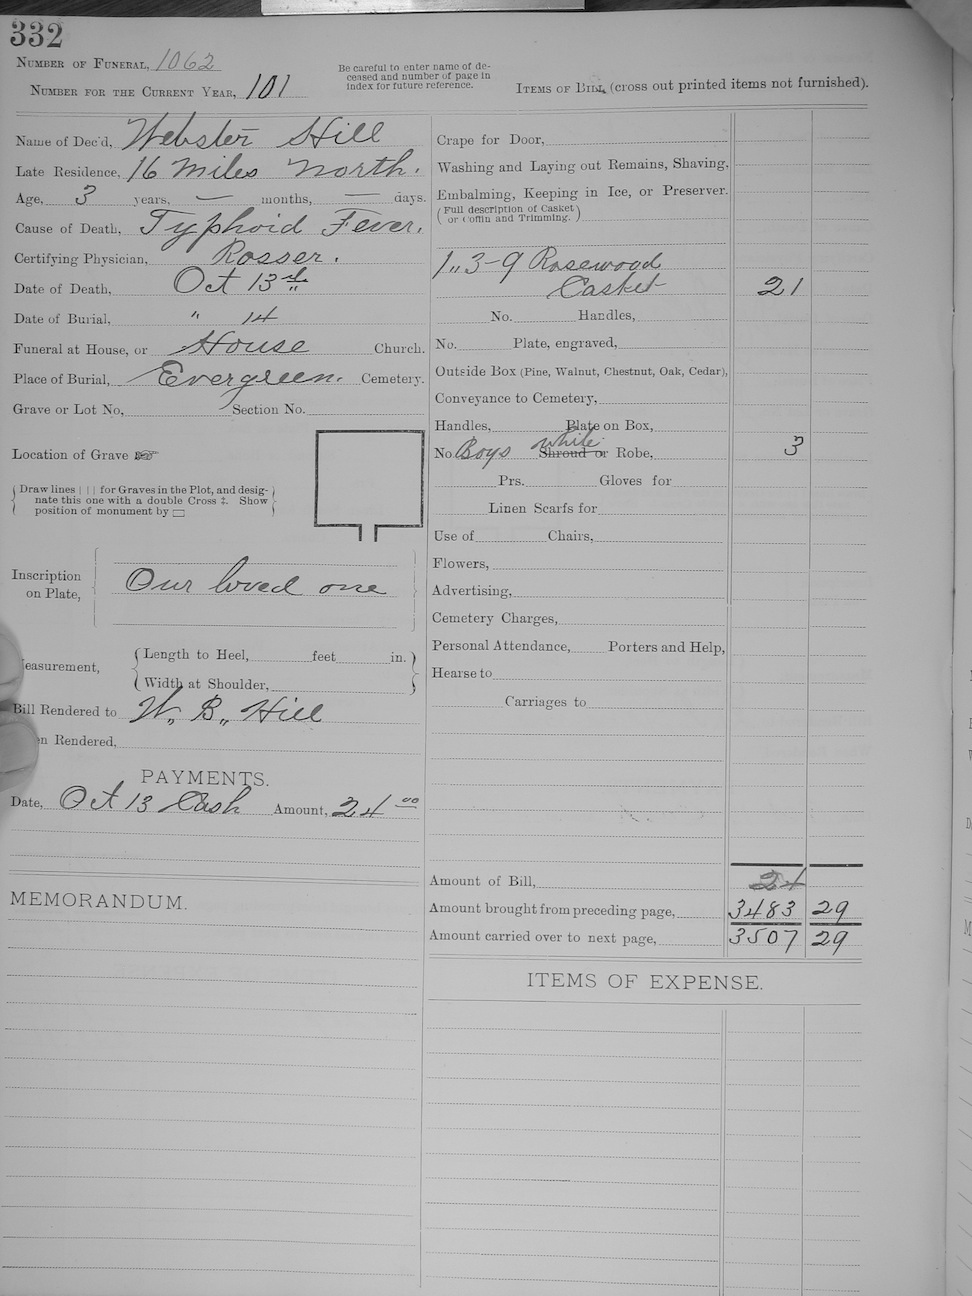 332
NUMBER OF FUNERAL, 1062
NUMBER FOR THE CURRENT YEAR, 101
Be careful to enter name of de-
ceased and number of page in
index for future reference.
ITEMS OF BILL (cross out printed items not furnished).
Name of Dec'd, Webster Hill
Late Residence, 16 Miles North.
Age, 3 years, — months, — days.
Cause of Death, Typhoid Fever.
Certifying Physician, Rosser.
Date of Death, Oct 13th
Date of Burial, " 14
Funeral at House, or House Church.
Place of Burial, Evergreen. Cemetery.
Grave or Lot No, Section No.
Location of Grave ☞
Draw lines | | | for Graves in the Plot, and desig-
nate this one with a double Cross ‡. Show
position of monument by ▭
Inscription
on Plate,
Our loved one
easurement,
Length to Heel, feet in.
Width at Shoulder,
Bill Rendered to W. B. Hill
en Rendered,
PAYMENTS.
Date, Oct 13 Cash Amount, 24 00
MEMORANDUM.
Crape for Door,
Washing and Laying out Remains, Shaving,
Embalming, Keeping in Ice, or Preserver.
(Full description of Casket
or Coffin and Trimming.)
1,, 3-9 Rosewood
Casket 21
No. Handles,
No. Plate, engraved,
Outside Box (Pine, Walnut, Chestnut, Oak, Cedar),
Conveyance to Cemetery,
Handles, Plate on Box,
white
No. Boys Shroud or Robe, 3
Prs. Gloves for
Linen Scarfs for
Use of Chairs,
Flowers,
Advertising,
Cemetery Charges,
Personal Attendance, Porters and Help,
Hearse to
Carriages to
Amount of Bill, 24
Amount brought from preceding page, 3483 29
Amount carried over to next page, 3507 29
ITEMS OF EXPENSE.